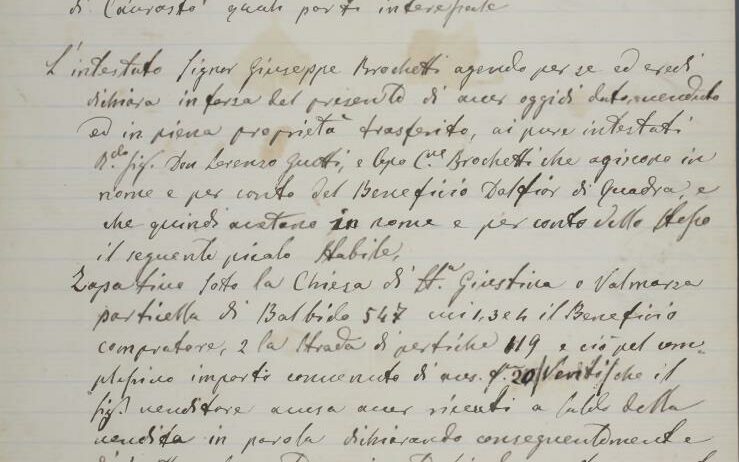 di Caurasto quali parti interessate
L'intestato Signor Giuseppe Brochetti agendo per se ed eredi
dichiara in forza del presente di aver oggidì dato, venduto
ed in piena proprietà trasferito, ai pure intestati
R.do sig. Don Lorenzo Guetti, e Capo C.ne Brochetti che agiscono in
nome e per conto del Beneficio Dalfior di Quadra, e
che quindi acetano in nome e per conto dello stesso
il seguente picolo Stabile,
Zapativo soto la Chiesa di St.a Giustina o Valmarza
particella di Balbido 547 cui 1, 3 e 4 il Beneficio
compratore, 2 la Strada di pertiche 119 e ciò pel com=
plessivo importo convenuto di aus. f. 20 /Venti/ che il
sig. venditore acusa aver ricevuti a saldo della
vendita in parola dichiarando conseguentemente e